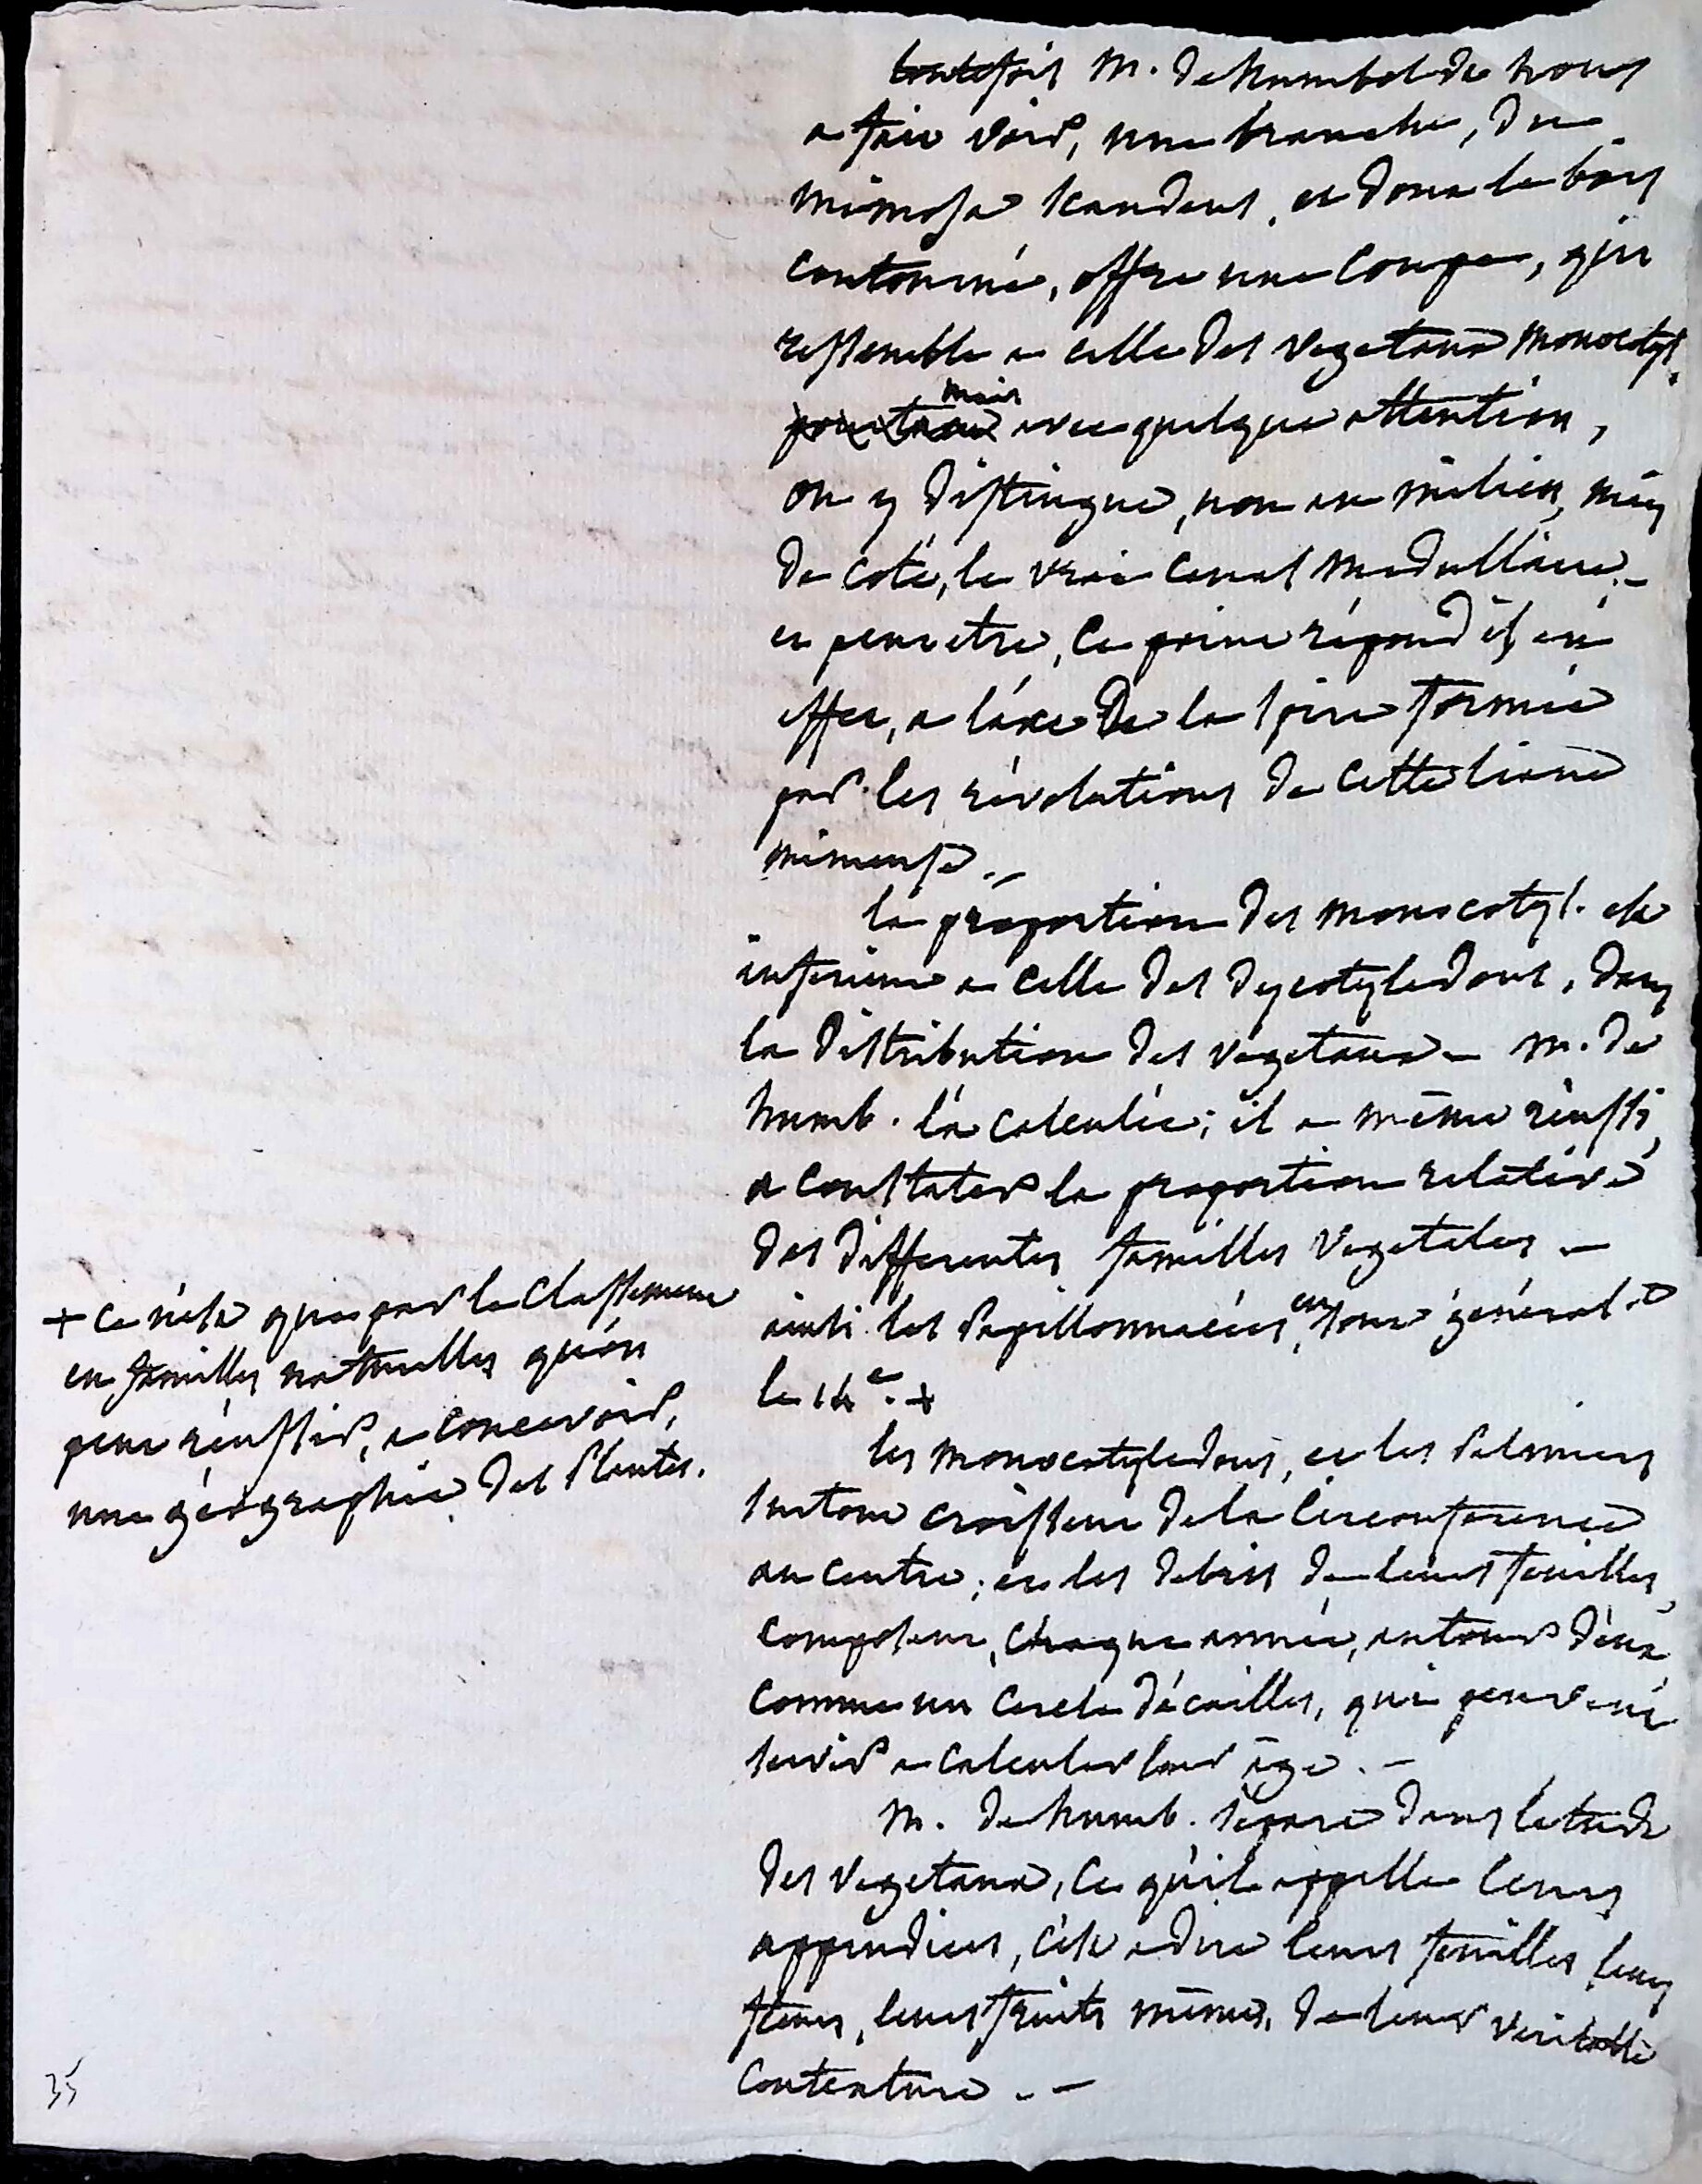 toutefois M. de humbolde nous
a fait voir, une branche, du
mimosa scandens, et dont le bois
contourné, offre une coupe, qui
ressemble a celle des vegetaux monocotyl.
pourtant mais avec quelque attention,
on y distingue, non au milieu, mais
de coté, le vrai canal medullaire. -
et peut etre, ce point répond il en
effet, a l'axe de la spire formée
par les révolutions de cette liane
immense. -
la proportion des monocotyl. est
inferieure a celle des dycotyledons, dans
la distribution des vegetaux - M. de
humb. l'a calculée; il a même réussi,
a constater la proportion relative
des differentes familles vegetales. -
ainsi les Papillonnacées, en sont général.t
le 14e. +
+ ce n'est que par le classement
en familles naturelles qu'on
peut réussir, a concevoir,
une géographie des Plantes.
les monocotyledons, et les Palmiers
surtout croissent de la circonference
au centre; et les debris de leurs feuilles,
composent, chaque année, autour d'eux,
comme un cercle d'écailles, qui peuvent
servir a calculer leur âge. -
M. de humb. separe dans l'etude
des vegetaux, ce qu'il appelle leurs
appendices, c'est a dire leurs feuilles leurs
fleurs, leurs fruits mêmes, de leur veritable
contexture. -
35